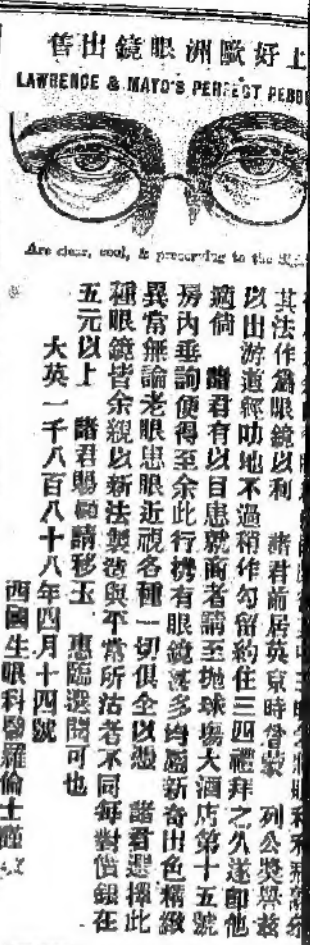 上好歐洲眼鏡出售
LAWRENCE & MAYO'S PERFECT PEBB
Are clear, cool, & preserving to the
其法作爲眼鏡以利 諸君前居英京時曾蒙 列公獎譽茲
以出游道經叻地不過稍作勾留約住三四禮拜之久遂即他
適倘 諸君有以目患就商者請至地球塲大酒店第十五號
房內垂詢便得至余此行機有眼鏡甚多均屬新奇出色精緻
異常無論老眼患眼近視各種一切俱全以憑 諸君選擇此
種眼鏡皆余親以新法製造與平常所沽者不同每對價銀在
五元以上 諸君賜顧請移玉 惠臨選閱可也
大英一千八百八十八年四月十四號
西國生眼科醫羅倫士謹